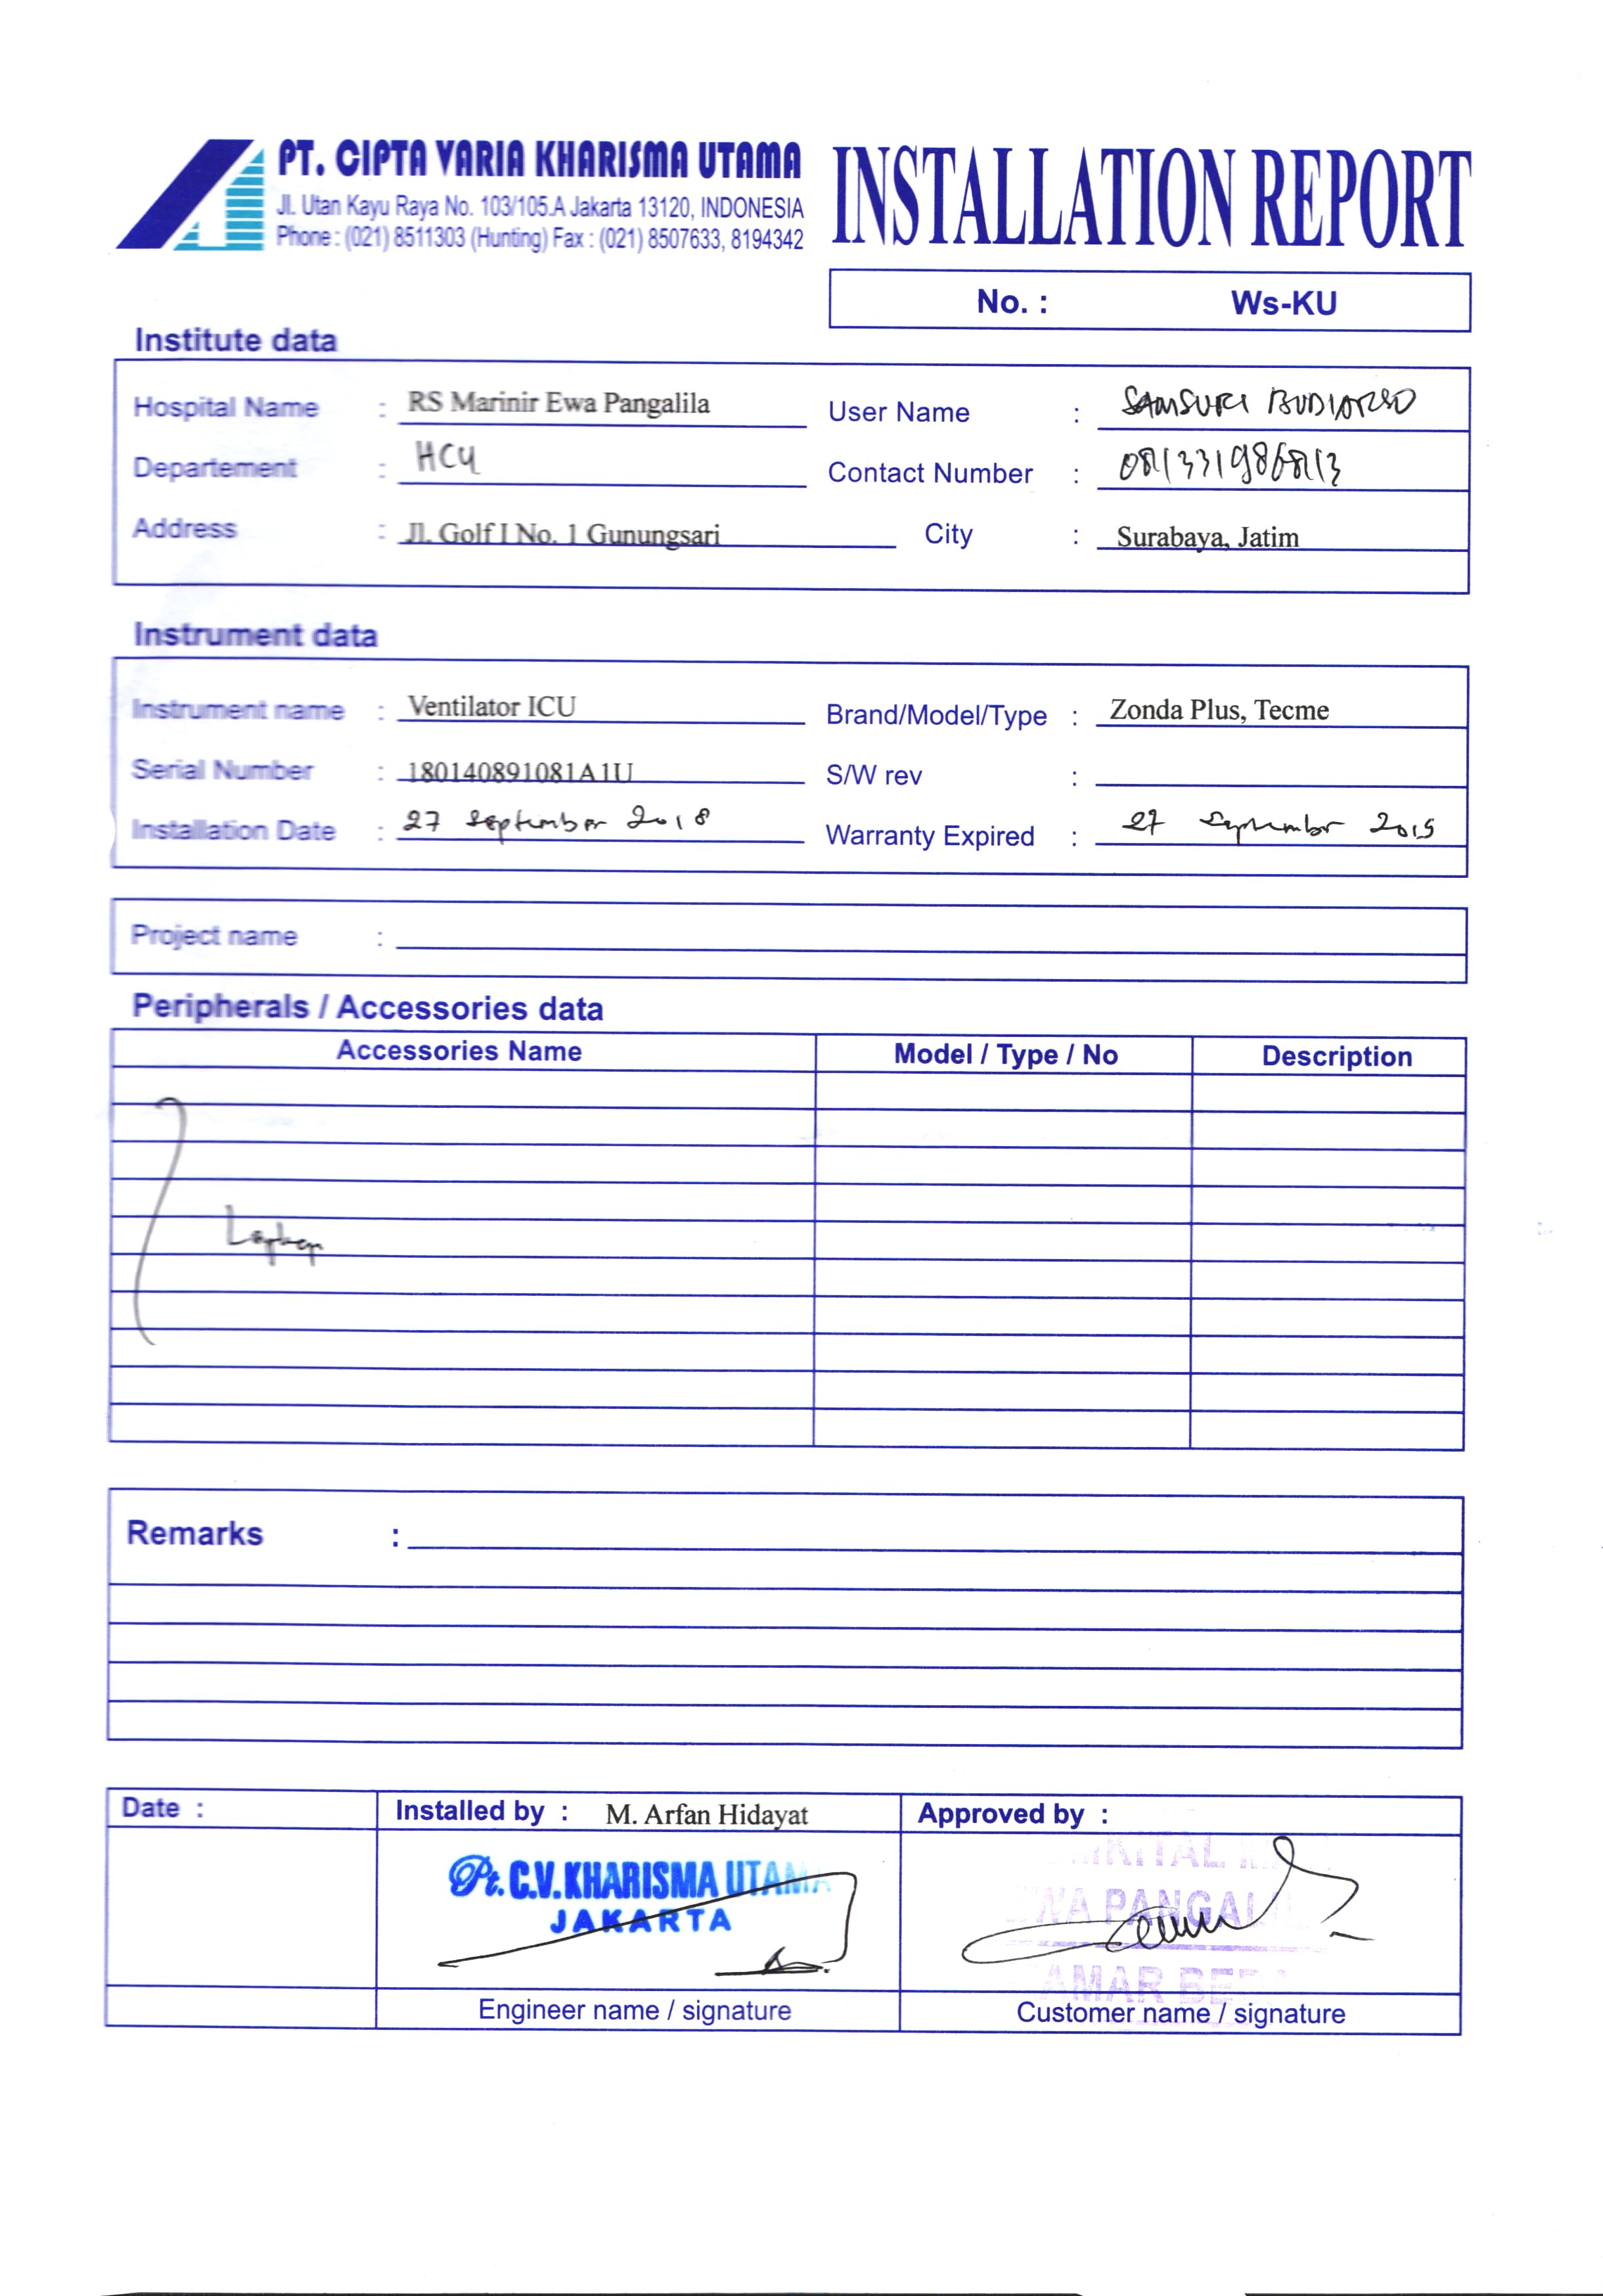 PT. CIPTA VARIA KHARISMA UTAMA
Jl. Utan Kayu Raya No. 103/105.A Jakarta 13120, INDONESIA
Phone : (021) 8511303 (Hunting) Fax : (021) 8507633, 8194342
INSTALLATION REPORT
No. : Ws-KU
Institute data
Hospital Name : RS Marinir Ewa Pangalila User Name : SAMSURI BUDIARSO
Departement : HCU Contact Number :
Address : Jl. Golf I No. 1 Gunungsari City : Surabaya, Jatim
Instrument data
Instrument name : Ventilator ICU Brand/Model/Type : Zonda Plus, Tecme
Serial Number : 180140891081A1U S/W rev :
Installation Date : 27 September 2018 Warranty Expired : 27 September 2019
Project name :
Peripherals / Accessories data
Accessories Name Model / Type / No Description
Remarks :
Date : Installed by : M. Arfan Hidayat Approved by :
Pt. C.V. KHARISMA UTAMA
JAKARTA
PANGALI
Engineer name / signature Customer name / signature